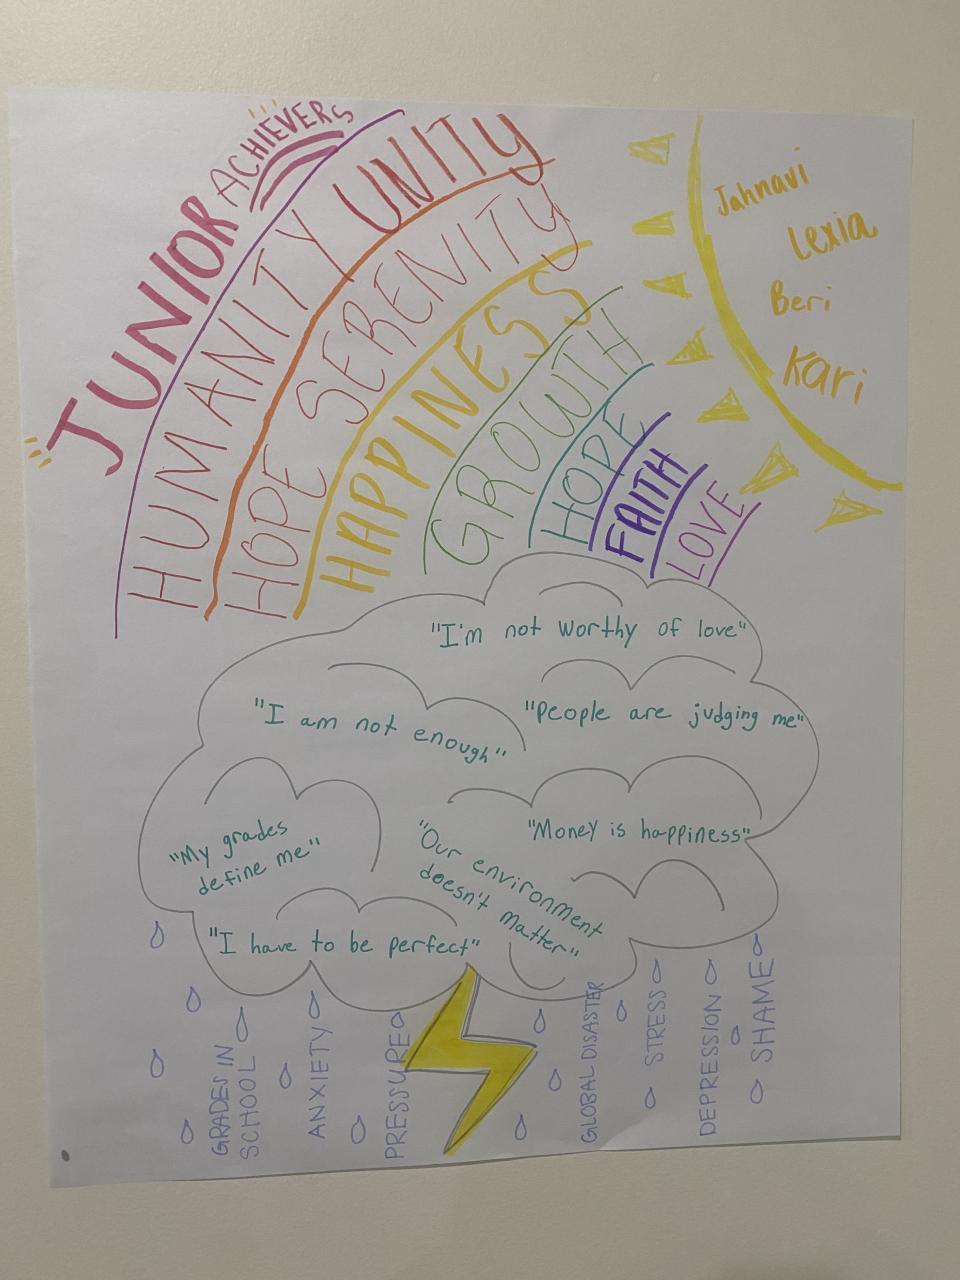 JUNIOR ACHIEVERS
HUMANITY UNITY
HOPE SERENITY
HAPPINESS
GROWTH
HOPE
FAITH
LOVE
Jahnavi
Lexia
Beri
Kari
"I'm not worthy of love"
"I am not enough"
"People are judging me"
"My grades
define me"
"Our environment
doesn't matter"
"Money is happiness"
"I have to be perfect"
GRADES IN
SCHOOL
ANXIETY
PRESSURE
GLOBAL DISASTER
STRESS
DEPRESSION
SHAME